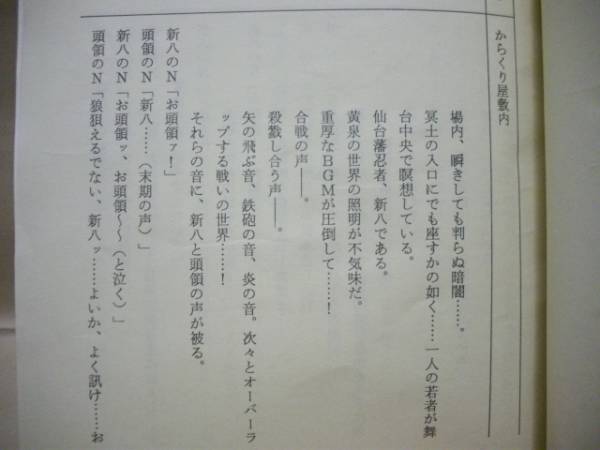 からくり屋敷内
場内、瞬きしても判らぬ暗闇……。
冥土の入口にでも座すかの如く……一人の若者が舞
台中央で瞑想している。
仙台藩忍者、新八である。
黄泉の世界の照明が不気味だ。
重厚なBGMが圧倒して……！
合戦の声――。
殺戮し合う声――。
矢の飛ぶ音、鉄砲の音、炎の音。次々とオーバーラ
ップする戦いの世界……！
それらの音に、新八と頭領の声が被る。
新八のN「お頭領ァ！」
頭領のN「新八……（末期の声）」
新八のN「お頭領ッ、お頭領〜〜（と泣く）」
頭領のN「狼狽えるでない、新八ッ……よいか、よく訊け……お